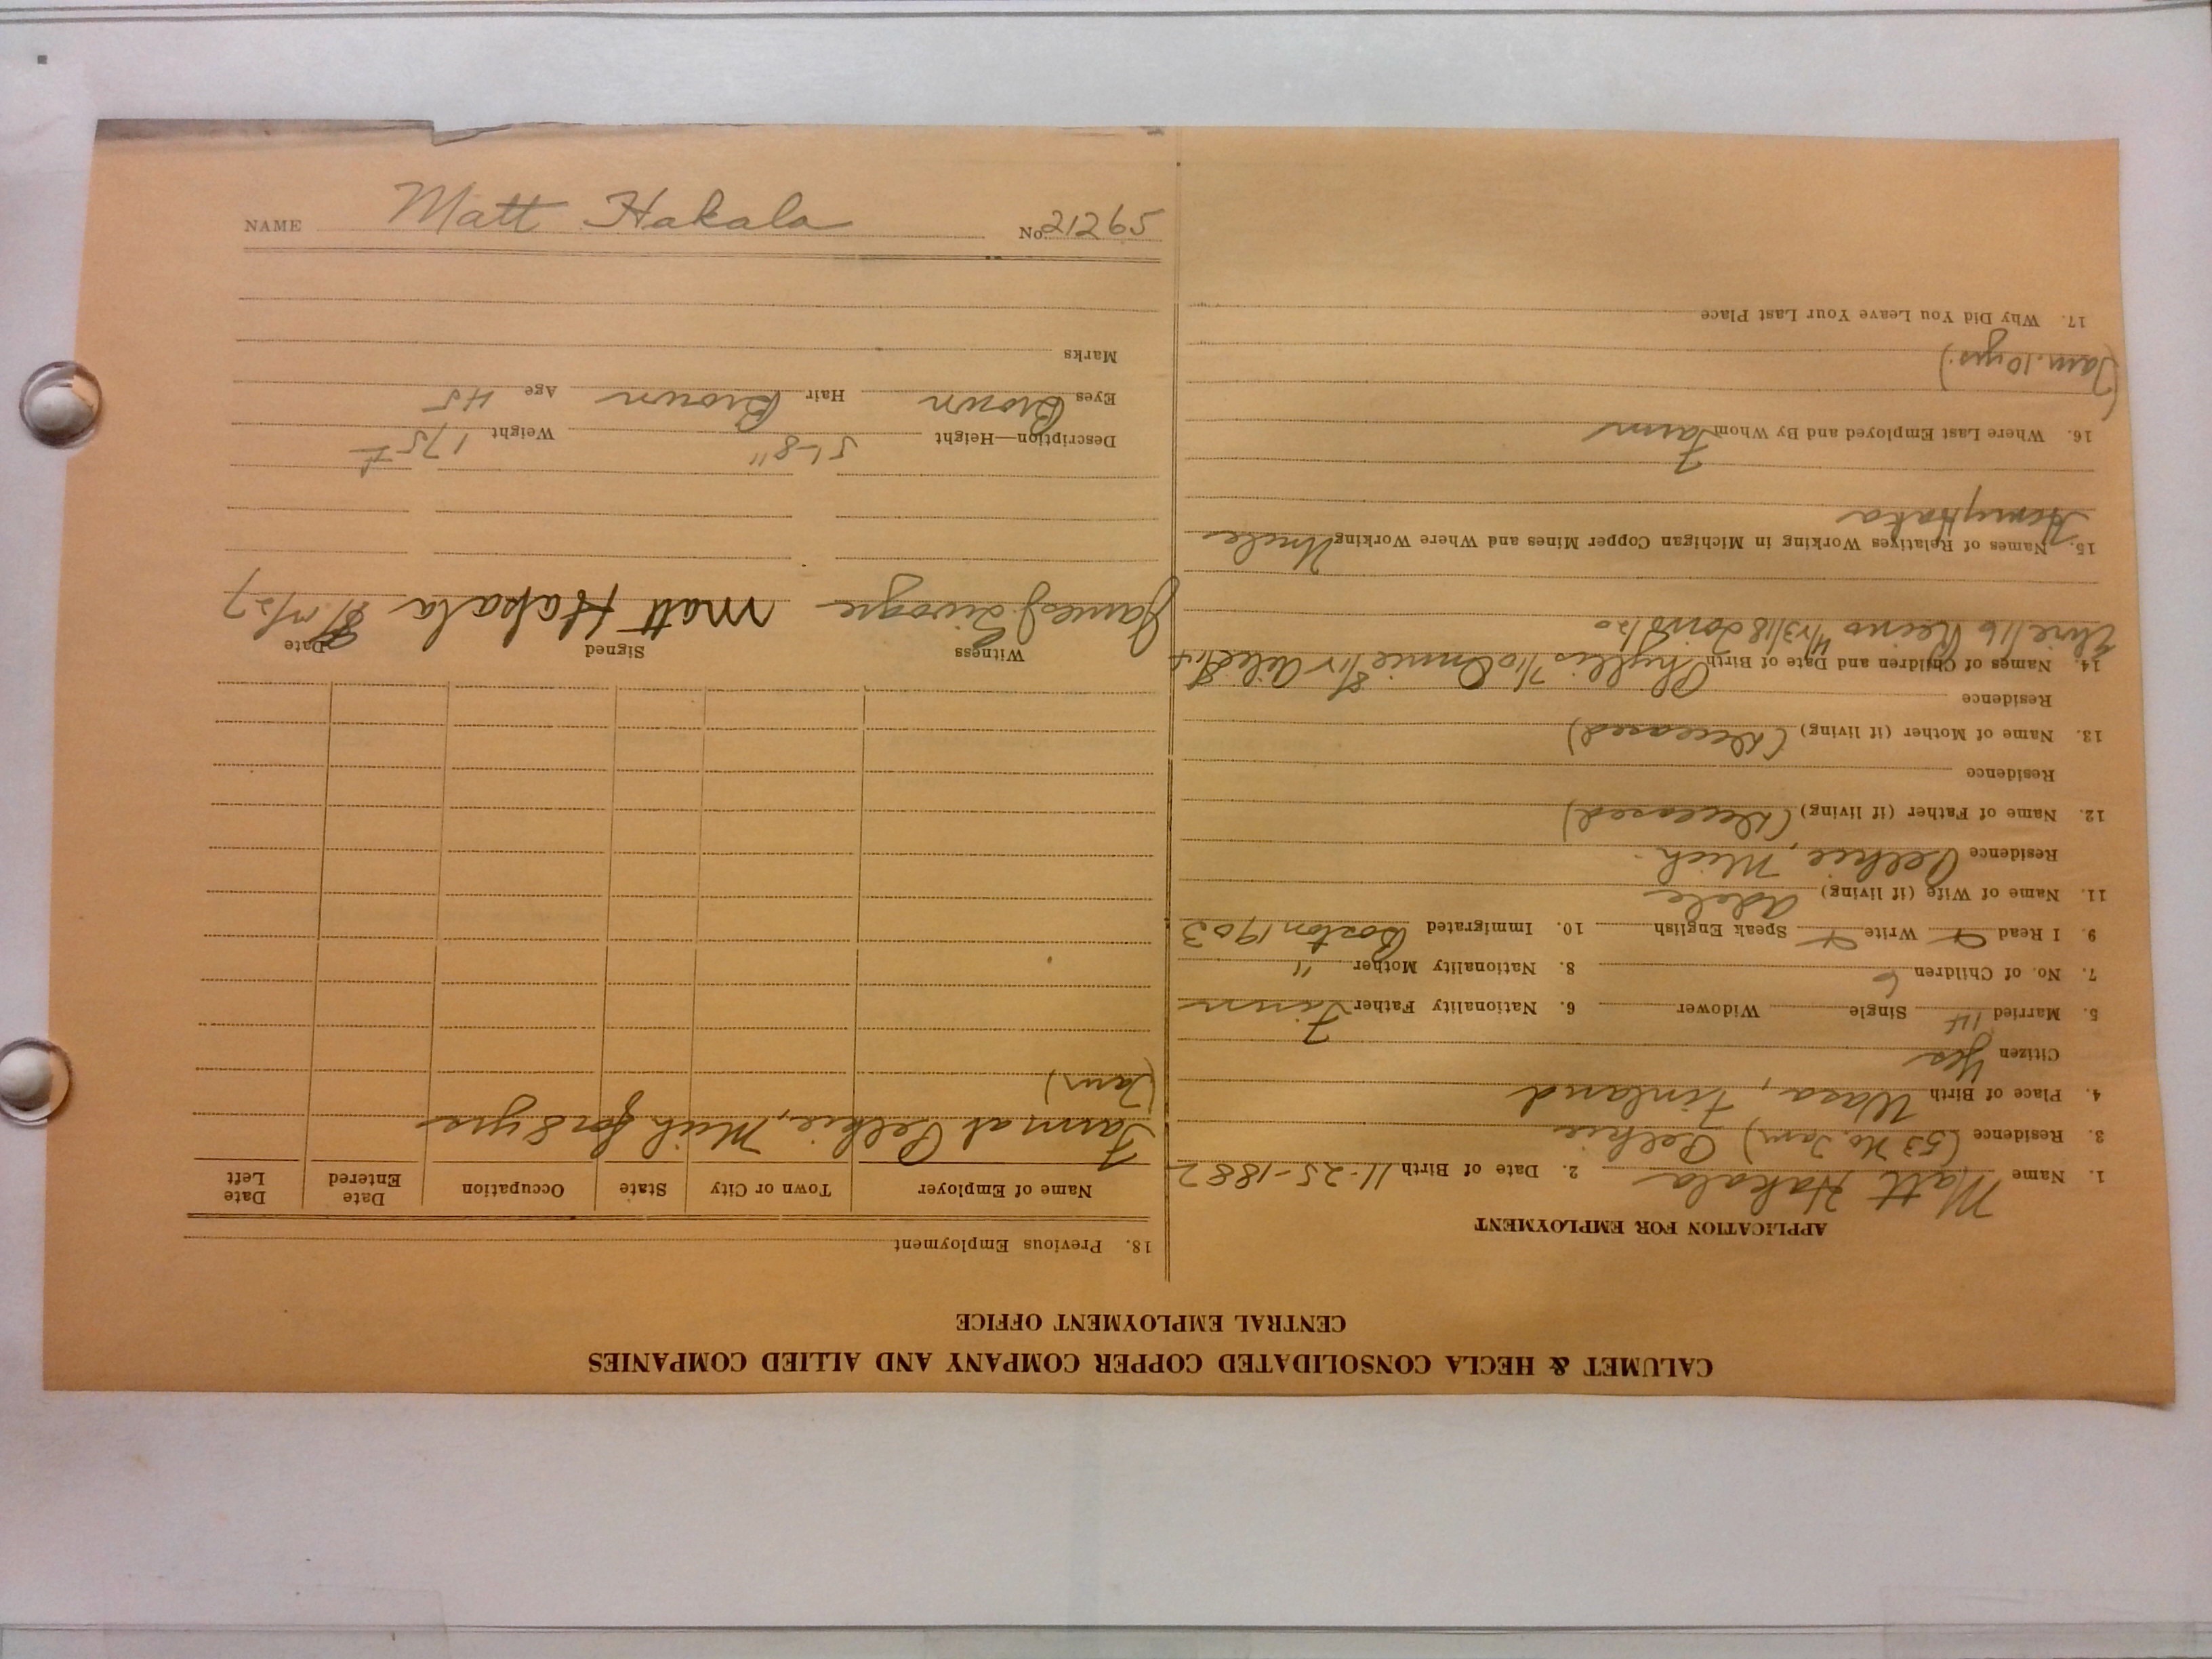 NAME Matt Hakala No. 21265
CALUMET & HECLA CONSOLIDATED COPPER COMPANY AND ALLIED COMPANIES
CENTRAL EMPLOYMENT OFFICE
APPLICATION FOR EMPLOYMENT
1. Name Matt Hakala 2. Date of Birth 11-25-1882
3. Residence (53 No. Tam) Pelkie
4. Place of Birth Wasa, Finland
Citizen Yes
5. Married 1st Single Widower 6. Nationality Father Finn
7. No. of Children 6 8. Nationality Mother "
9. I Read Write Speak English 10. Immigrated Boston 1903
11. Name of Wife (if living) Adele
Residence Pelkie, Mich.
12. Name of Father (if living) (Deceased)
Residence
13. Name of Mother (if living) (Deceased)
Residence
14. Names of Children and Date of Birth Phyllis 7/10 Annie
Reino 4/13/18
15. Names of Relatives Working in Michigan Copper Mines and Where Working Uncle
Henry Haka
16. Where Last Employed and By Whom Farm
(Tam. 10 yrs.)
17. Why Did You Leave Your Last Place
18. Previous Employment
Name of Employer Town or City State Occupation Date Entered Date Left
Farm at Pelkie, Mich for 8 yrs
(Tam)
Witness Signed Date
James J. Matt Hakala
Description—Height 5'-8" Weight 175
Eyes Brown Hair Brown Age 45
Marks